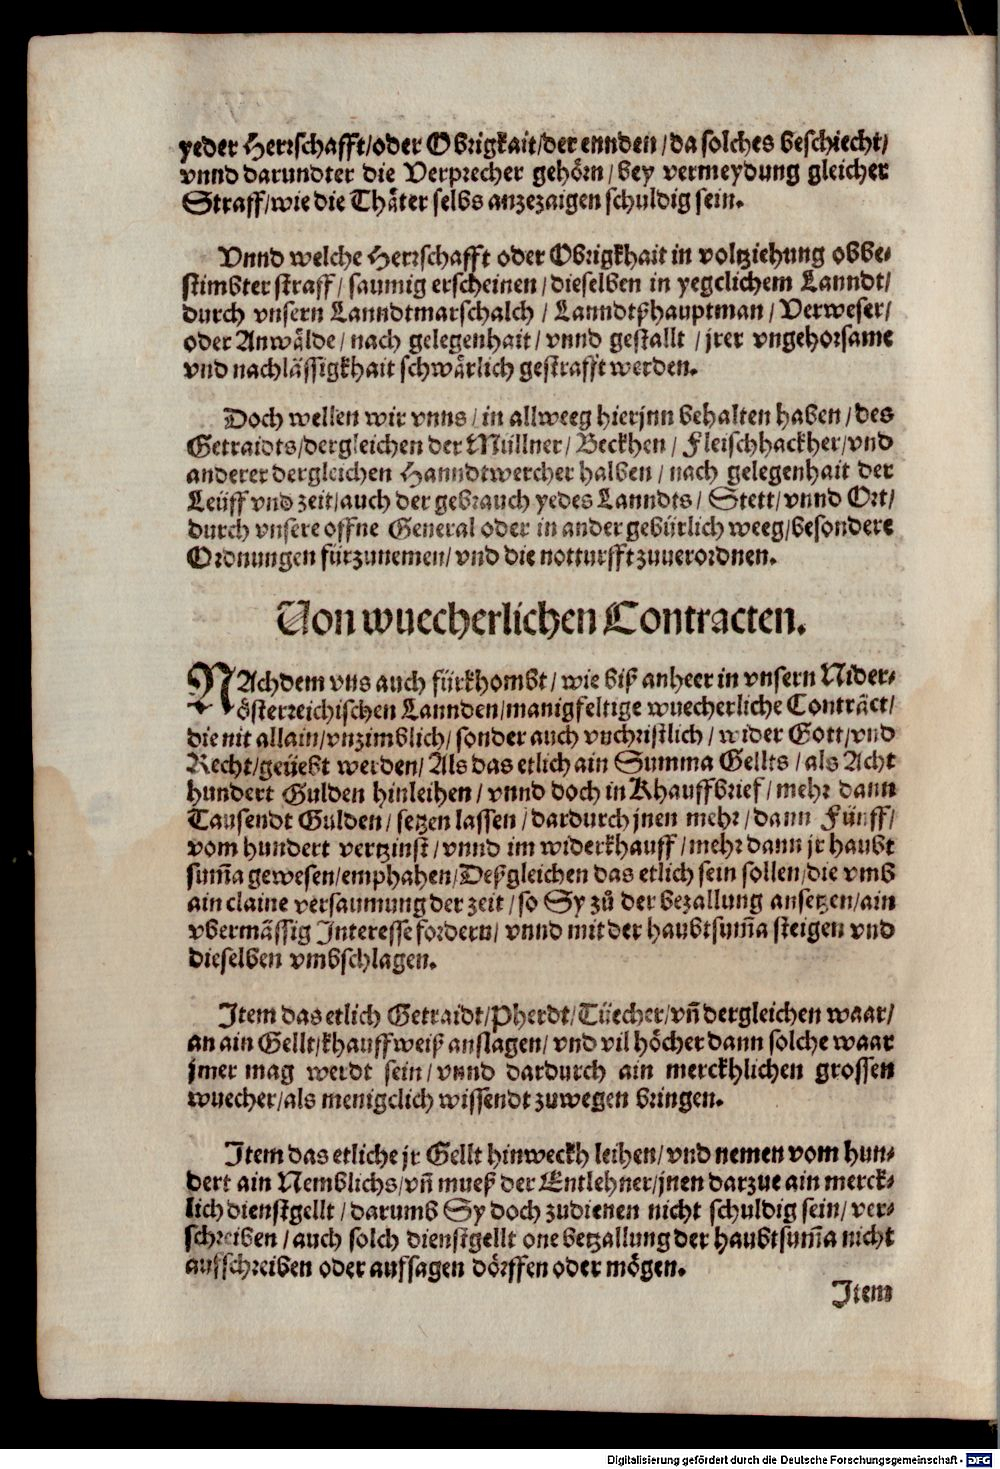 yeder Herrschafft/oder Obrigkait/der ennden/da solches beschiecht/
vnnd darundter die Verprecher gehörn/bey vermeydung gleicher
Straff/wie die Thäter selbs anzezaigen schuldig sein.
Vnnd welche Herrschafft oder Obrigkhait in voltziehung obbe-
stimbter straff/ saumig erscheinen/dieselben in yegclichem Lanndt/
durch vnsern Lanndtmarschalch / Lanndtßhauptman/ Verweser/
oder Anwälde/ nach gelegenhait/ vnnd gestallt /jrer vngehorsame
vnd nachlässigkhait schwärlich gestrafft werden.
Doch wellen wir vnns/in allweeg hierjnn behalten haben/des
Getraidts/dergleichen der Müllner/ Beckhen/ Fleischhackher/vnd
anderer dergleichen Hanndtwercher halben/ nach gelegenhait der
Leüff vnd zeit/auch der gebrauch yedes Lanndts/ Stett/vnnd Ort/
durch vnsere offne General oder in ander gebürlich weeg/besondere
Ordnungen fürzunemen/vnd die notturfft zuuerordnen.
Von wuecherlichen Contracten.
NAchdem vns auch fürkhombt/ wie biß anheer in vnsern Nider-
österreichischen Lannden/manigfeltige wuecherliche Conträct/
die nit allain/vnzimblich/sonder auch vnchristlich/ wider Gott/vnd
Recht/geüebt werden/ Als das etlich ain Summa Gellts/als Acht
hundert Gulden hinleihen/vnnd doch in Khauffbrief/mehr dann
Tausendt Gulden/ setzen lassen/dardurch jnen mehr/dann Fünff/
vom hundert vertzinst/vnnd im widerkhauff/mehr dann jr haubt
sum̃a gewesen/emphahen/Deßgleichen das etlich sein sollen/die vmb
ain claine versaumung der zeit/so Sy zů der bezallung ansetzen/ain
vbermässig Interesse fordern/ vnnd mit der haubtsum̃a steigen vnd
dieselben vmbschlagen.
Item das etlich Getraidt/Pherdt/Tüecher/vñ dergleichen waar/
an ain Gellt/khauffweiß anslagen/ vnd vil höcher dann solche waar
jmer mag werdt sein/vnnd dardurch ain merckhlichen grossen
wuecher/als menigclich wissendt zuwegen bringen.
Item das etliche jr Gellt hinweckh leihen/vnd nemen vom hun-
dert ain Nemblichs/vñ mueß der Entlehner/jnen darzue ain merck-
lich dienstgellt/darumb Sy doch zudienen nicht schuldig sein/ ver-
schreiben/auch solch dienstgellt one betzallung der haubtsum̃a nicht
aufschreiben oder aufsagen dörffen oder mögen.
Item
Digitalisierung gefördert durch die Deutsche Forschungsgemeinschaft - DFG